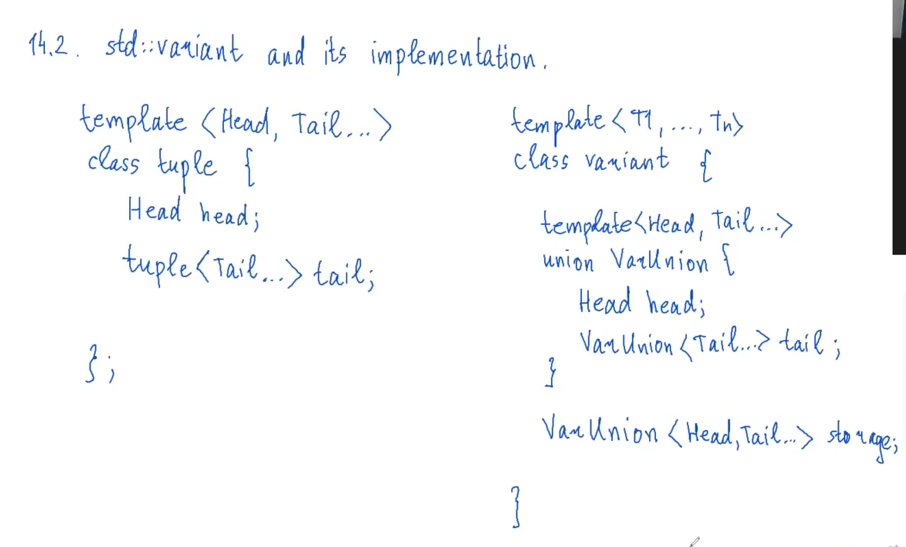 14.2. std::variant and its implementation.
template <Head, Tail...>
class tuple {
Head head;
tuple<Tail...> tail;
};
template<T1, ..., Tn>
class variant {
template<Head, Tail...>
union VarUnion {
Head head;
VarUnion<Tail...> tail;
}
VarUnion<Head,Tail...> storage;
}